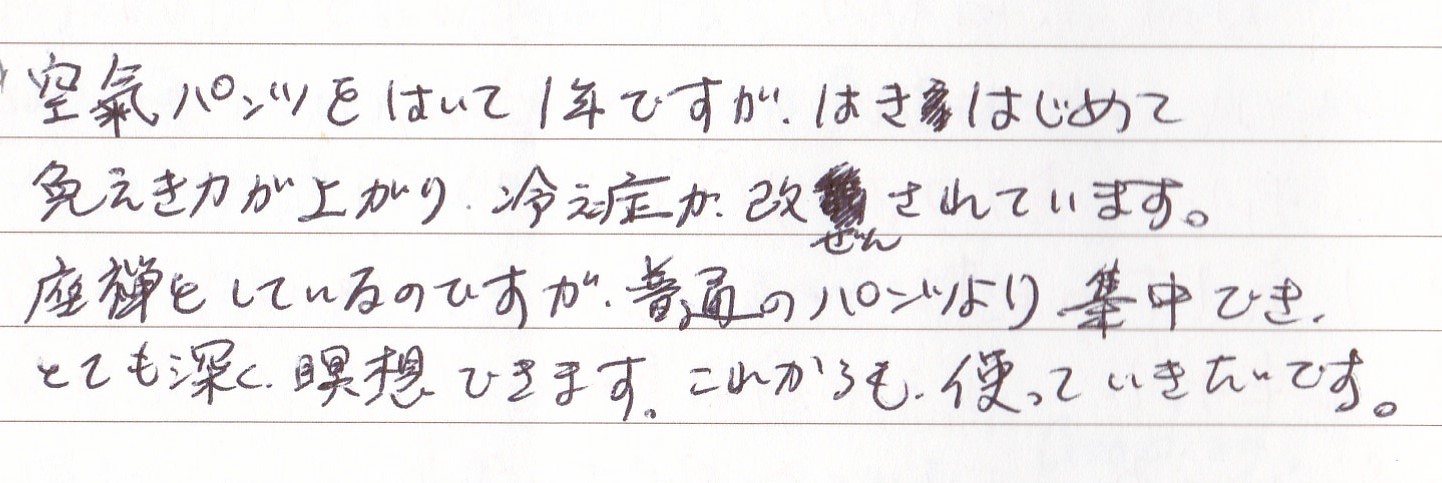 空氣パンツをはいて1年ですが、はきはじめて
免えき力が上がり、冷え症が、改ぜんされています。
座禅をしているのですが、普通のパンツより集中でき、
とても深く、瞑想できます。これからも、使っていきたいです。